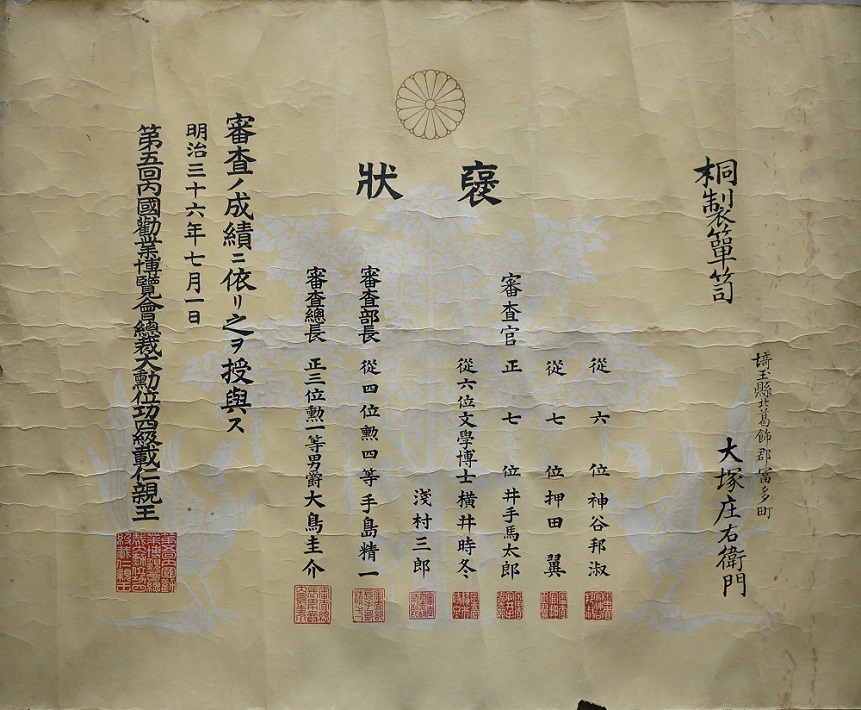 褒狀
桐製簞笥
埼玉縣北葛飾郡富多町
大塚庄右衛門
從六位神谷邦淑
從七位押田翼
審査官正七位井手馬太郎
從六位文學博士橫井時冬
淺村三郎
審査部長從四位勲四等手島精一
審査總長正三位勲一等男爵大鳥圭介
審査ノ成績ニ依リ之ヲ授與ス
明治三十六年七月一日
第五回內國勸業博覽會總裁大勳位功四級載仁親王